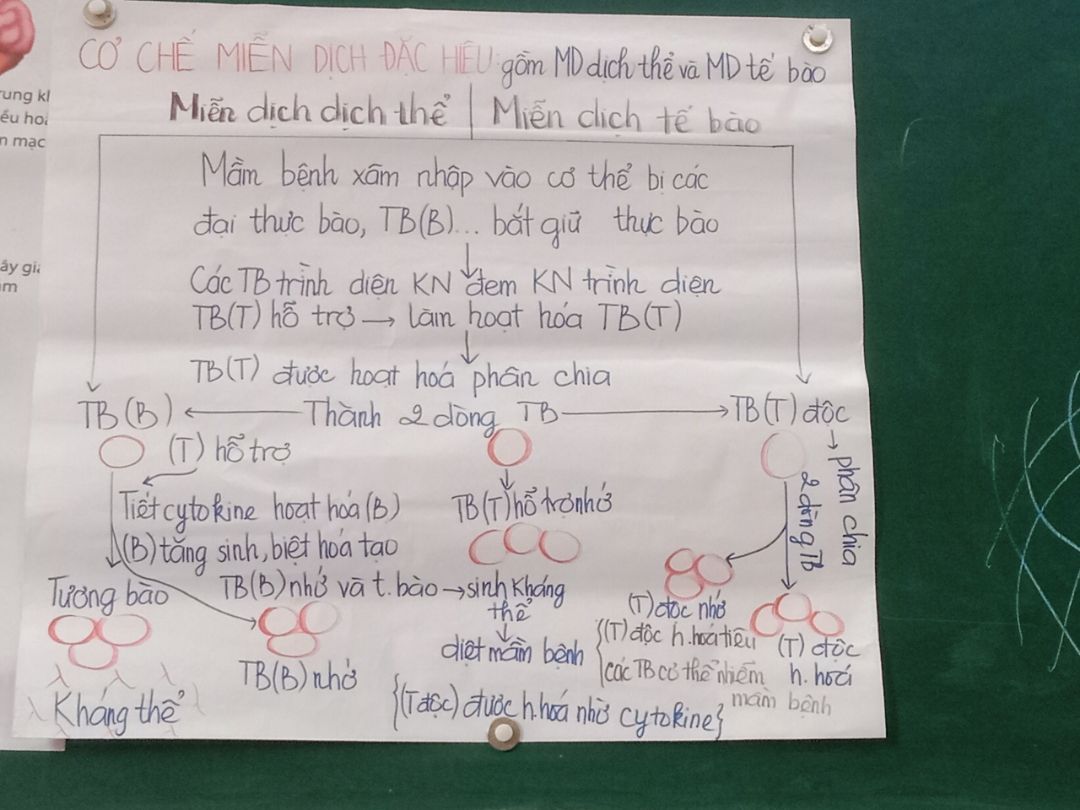 CƠ CHẾ MIỄN DỊCH ĐẶC HIỆU: gồm MD dịch thể và MD tế bào
Miễn dịch dịch thể | Miễn dịch tế bào
Mầm bệnh xâm nhập vào cơ thể bị các
đại thực bào, TB(B)... bắt giữ thực bào
Các TB trình diện KN đem KN trình diện
TB(T) hỗ trợ → làm hoạt hóa TB(T)
TB(T) được hoạt hoá phân chia
TB(B) ← Thành 2 dòng TB → TB(T) độc
(T) hỗ trợ
→ phân chia
2 dòng TB
Tiết cytokine hoạt hóa (B)
(B) tăng sinh, biệt hóa tạo
TB(T) hỗ trợ nhớ
Tương bào
TB(B) nhớ và t.bào → sinh kháng
thể
diệt mầm bệnh
TB(B) nhớ
Kháng thể
(T) độc nhớ
{(T) độc h.hoá tiêu
các TB cơ thể nhiễm
mầm bệnh
(T) độc
h.hoá
{(T độc) được h.hoá nhờ cytokine}
rung k
ều hoà
n mạc
ây gi
m